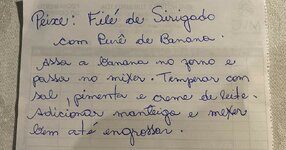 Peixe: Filé de Sirigado
com Purê de Banana.
Assa a banana no forno e
passa no mixer. Temperar com
sal, pimenta e creme de leite.
Adicionar manteiga e mexer
bem até engrossar.